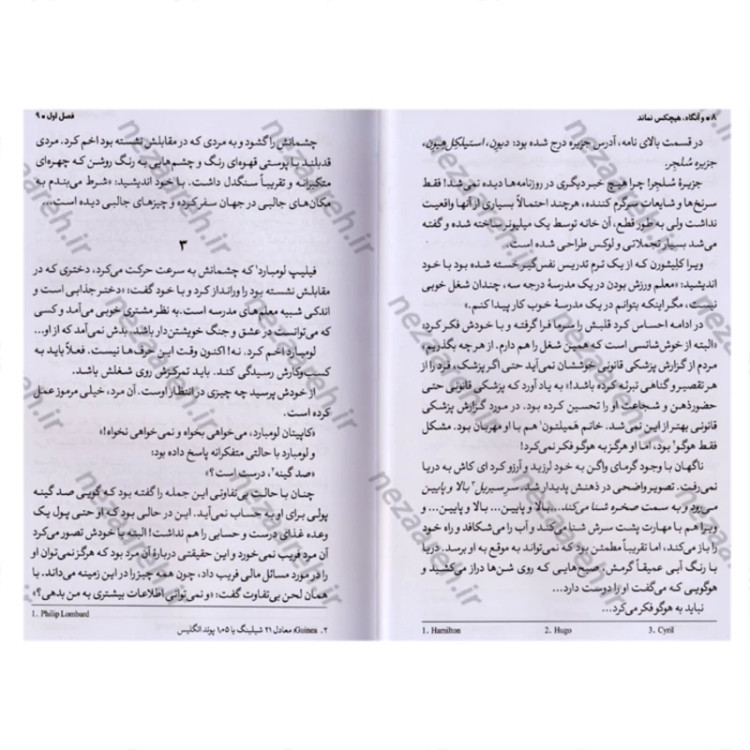 ۸ ▪ و آنگاه، هیچکس نماند
در قسمت بالای نامه، آدرس جزیره درج شده بود: دیون، استیلکل‌هیون،
جزیره سُلجِر.
جزیرهٔ سُلجِر! چرا هیچ خبر دیگری در روزنامه‌ها دیده نمی‌شد! فقط
سرنخ‌ها و شایعات سرگرم کننده، هرچند احتمالاً بسیاری از آنها واقعیت
نداشت ولی به طور قطع، آن خانه توسط یک میلیونر ساخته شده و گفته
می‌شد بسیار تجملاتی و لوکس طراحی شده است.
ویرا کلیثورن که از یک ترم تدریس نفس‌گیر خسته شده بود با خود
اندیشید: «معلم ورزش بودن در یک مدرسهٔ درجه سه، چندان شغل خوبی
نیست، مگر اینکه بتوانم در یک مدرسهٔ خوب کار پیدا کنم.»
در ادامه احساس کرد قلبش را سرما فرا گرفته و با خودش فکر کرد:
«البته از خوش‌شانسی است که همین شغل را هم دارم. از هر چه بگذریم،
مردم از گزارش پزشکی قانونی خوششان نمی‌آید حتی اگر پزشک، فرد را از
هر تقصیر و گناهی تبرئه کرده باشد!» به یاد آورد که پزشکی قانونی حتی
حضور ذهن و شجاعت او را تحسین کرده بود. در مورد گزارش پزشکی
قانونی بهتر از این نمی‌شد. خانم همیلتون¹ هم با او مهربان بود. مشکل
فقط هوگو² بود، اما او هرگز به هوگو فکر نمی‌کرد!
ناگهان با وجود گرمای واگن به خود لرزید و آرزو کرد ای کاش به دریا
نمی‌رفت. تصویر واضحی در ذهنش پدیدار شد. سرِ سیریل³ بالا و پایین
می‌رود و به سمت صخره شنا می‌کند...بالا و پایین... بالا و پایین... و
ویرا هم با مهارت پشت سرش شنا می‌کند و آب را می‌شکافد و راه خود
را باز می‌کند، اما تقریباً مطمئن بود که نمی‌تواند به موقع به او برسد. دریا
با رنگ آبی عمیقاً گرمش، صبح‌هایی که روی شن‌ها دراز می‌کشید و
هوگویی که می‌گفت او را دوست دارد...
نباید به هوگو فکر می‌کرد...
1. Hamilton 2. Hugo 3. Cyril
فصل اول ▪ ۹
چشمانش را گشود و به مردی که در مقابلش نشسته بود اخم کرد. مردی
قدبلند با پوستی قهوه‌ای رنگ و چشم‌هایی به رنگ روشن که چهره‌ای
متکبرانه و تقریباً سنگدل داشت. با خود اندیشید: «شرط می‌بندم به
مکان‌های جالبی در جهان سفر کرده و چیزهای جالبی دیده است...
۳
فیلیپ لومبارد¹ که چشمانش به سرعت حرکت می‌کرد، دختری که در
مقابلش نشسته بود را ورانداز کرد و با خود گفت: «دختر جذابی است و
اندکی شبیه معلم‌های مدرسه است.به نظر مشتری خوبی می‌آمد و کسی
که می‌توانست در عشق و جنگ خویشتن‌دار باشد. بدش نمی‌آمد که از او...
لومبارد اخم کرد. نه! اکنون وقت این حرف‌ها نیست. فعلاً باید به
کسب‌وکارش رسیدگی کند. باید تمرکزش روی شغلش باشد.
از خودش پرسید چه چیزی در انتظار اوست. آن مرد، خیلی مرموز عمل
کرده است.
«کاپیتان لومبارد، می‌خواهی بخواه و نمی‌خواهی نخواه!»
و لومبارد با حالتی متفکرانه پاسخ داده بود:
«صد گینه²، درست است؟»
چنان با حالت بی‌تفاوتی این جمله را گفته بود که گویی صد گینه
پولی برای او به حساب نمی‌آید. این در حالی بود که او حتی پول یک
وعده غذای درست و حسابی را هم نداشت! البته با خودش تصور می‌کرد
آن مرد فریب نمی‌خورد و این حقیقتی دربارهٔ آن مرد بود که هرگز نمی‌توان او
را در مورد مسائل مالی فریب داد، چون همه چیز را در این زمینه می‌داند. با
همان لحن بی‌تفاوت گفت: «و نمی‌توانی اطلاعات بیشتری به من بدهی؟»
1. Philip Lombard
۲. Guinea: معادل ۲۱ شیلینگ یا ۱٫۰۵ پوند انگلیس
nezaareh.ir